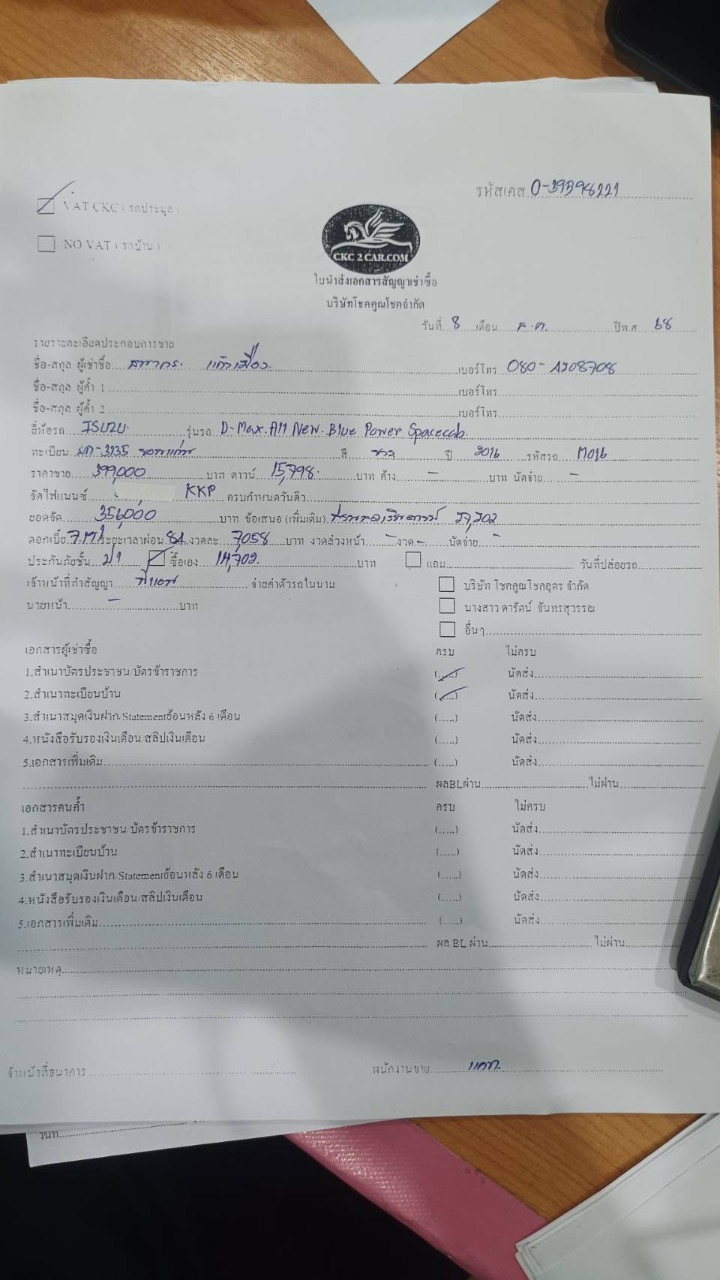 รหัสเคส 0-39398221
VAT CKC (รถประมูล)
NO VAT (รถบ้าน)
CKC 2 CAR.COM
ใบนำส่งเอกสารสัญญาเช่าซื้อ
บริษัทโชคคูณโชคจำกัด
วันที่ 8 เดือน ต.ค. ปีพ.ศ 68
รายรายละเอียดประกอบการขาย
ชื่อ-สกุล ผู้เช่าซื้อ เบอร์โทร 080-
ชื่อ-สกุล ผู้ค้ำ 1 เบอร์โทร
ชื่อ-สกุล ผู้ค้ำ 2 เบอร์โทร
ยี่ห้อรถ ISUZU รุ่นรถ D-Max.All New.Blue Power Spacecab
ทะเบียน ขอนแก่น สี ขาว ปี 2016 รหัสรถ M016
ราคาขาย 399,000 บาท ดาวน์ 15,798 บาท ค้าง - บาท นัดจ่าย -
จัดไฟแนนซ์ KKP ครบกำหนดวันดิว
ยอดจัด 356,000 บาท ข้อเสนอ (เพิ่มเติม) 27,202
ดอกเบี้ย ระยะเวลาผ่อน 84 งวดละ 7058 บาท งวดล่วงหน้า - งวด - นัดจ่าย -
ประกันภัยชั้น ป1 ซื้อเอง 14,702 บาท แถม วันที่ปล่อยรถ
เจ้าหน้าที่ทำสัญญา จ่ายค่าตัวรถในนาม บริษัท โชคคูณโชคอุดร จำกัด
นายหน้า - บาท นางสาว ดารัตน์ จันทรสุวรรณ
อื่นๆ
เอกสารผู้เช่าซื้อ ครบ ไม่ครบ
1.สำเนาบัตรประชาชน/บัตรข้าราชการ (.....) นัดส่ง
2.สำเนาทะเบียนบ้าน (.....) นัดส่ง
3.สำเนาสมุดเงินฝาก/Statementย้อนหลัง 6 เดือน (.....) นัดส่ง
4.หนังสือรับรองเงินเดือน/สลิปเงินเดือน (.....) นัดส่ง
5.เอกสารเพิ่มเติม (.....) นัดส่ง
ผลBLผ่าน ไม่ผ่าน
เอกสารคนค้ำ ครบ ไม่ครบ
1.สำเนาบัตรประชาชน/บัตรข้าราชการ (.....) นัดส่ง
2.สำเนาทะเบียนบ้าน (.....) นัดส่ง
3.สำเนาสมุดเงินฝาก/Statementย้อนหลัง 6 เดือน (.....) นัดส่ง
4.หนังสือรับรองเงินเดือน/สลิปเงินเดือน (.....) นัดส่ง
5.เอกสารเพิ่มเติม (.....) นัดส่ง
ผล BL ผ่าน ไม่ผ่าน
หมายเหตุ
เจ้าหน้าที่ธนาคาร พนักงานขาย
วันที่